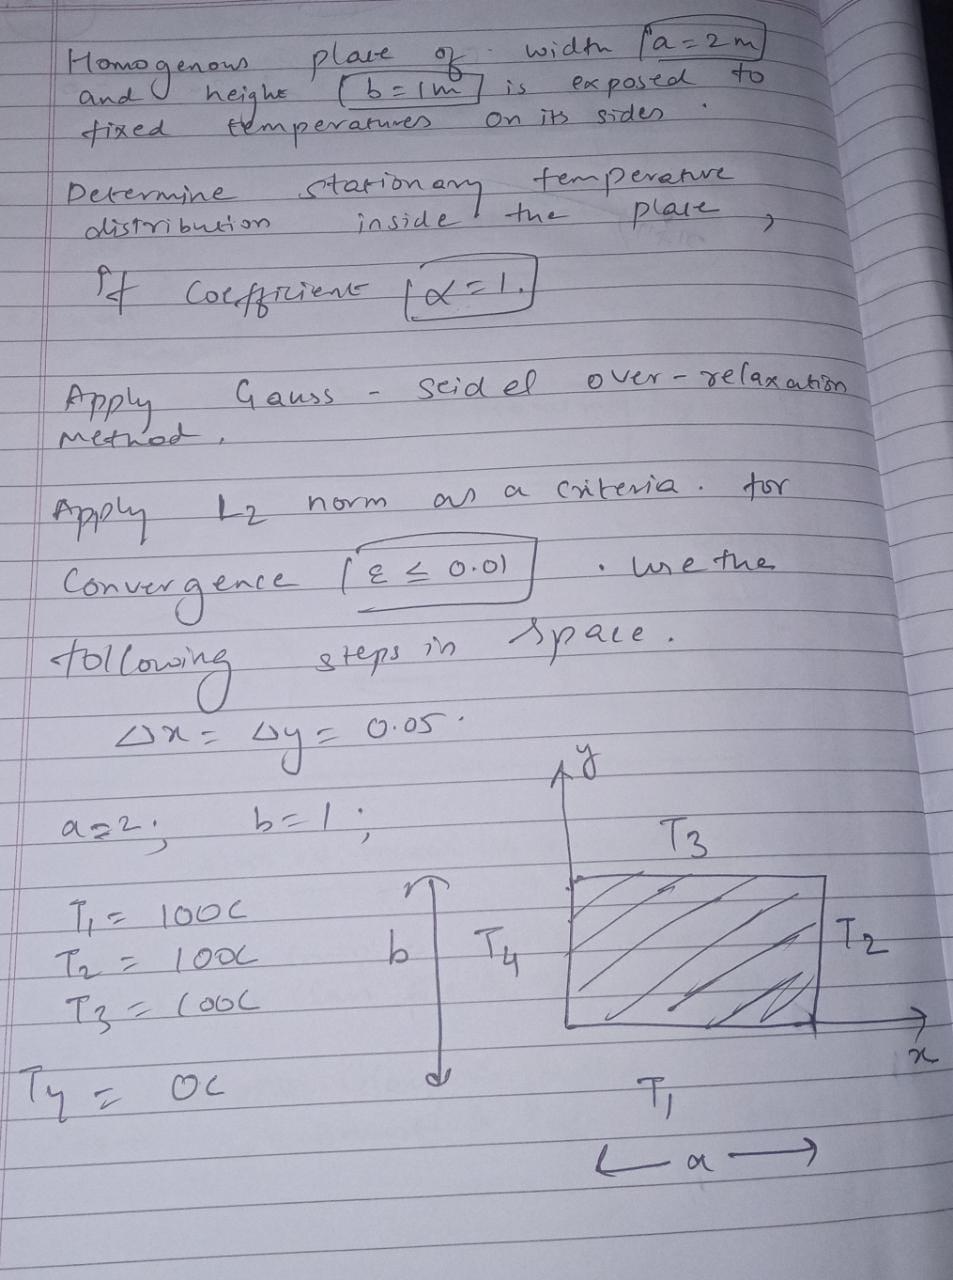 Homogenous plate of width a = 2m
and height b = 1m is exposed to
fixed temperatures on its sides.
Determine stationary temperature
distribution inside the plate,
If coefficient α = 1.
Apply Gauss - Seidel over-relaxation
Method.
Apply L2 norm as a criteria. for
Convergence ε ≤ 0.01. use the
following steps in space.
Δx = Δy = 0.05.
a = 2; b = 1;
y
T3
T1 = 100C
T2 = 100C
T3 = 100C
T4 = 0C
b
T4
T2
x
T1
a